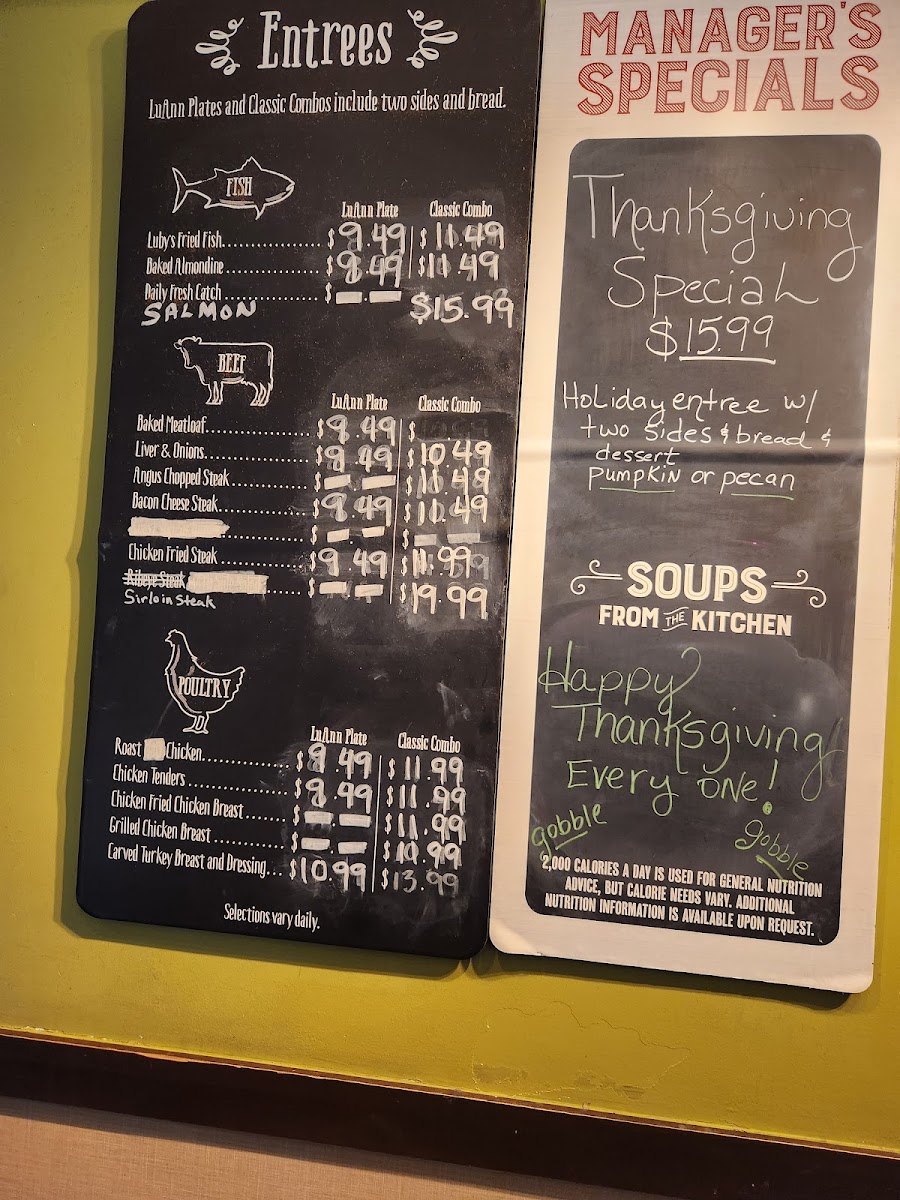 Entrees
LuAnn Plates and Classic Combos include two sides and bread.
FISH
LuAnn Plate Classic Combo
Luby's Fried Fish $9.49 $11.49
Baked Almondine $9.49 $11.49
Daily Fresh Catch $ — — $15.99
SALMON
BEEF
LuAnn Plate Classic Combo
Baked Meatloaf $9.49 $
Liver & Onions $9.49 $10.49
Angus Chopped Steak $ — — $10.49
Bacon Cheese Steak $9.49 $10.49
$ — — $ — —
Chicken Fried Steak $9.49 $11.99
Ribeye Steak $ — — $19.99
Sirloin Steak
POULTRY
LuAnn Plate Classic Combo
Roast Chicken $9.49 $11.99
Chicken Tenders $9.49 $11.99
Chicken Fried Chicken Breast $ — — $11.99
Grilled Chicken Breast $ — — $10.99
Carved Turkey Breast and Dressing... $10.99 $13.99
Selections vary daily.
MANAGER'S
SPECIALS
Thanksgiving
Special
$15.99
Holiday entree w/
two sides & bread &
dessert
pumpkin or pecan
SOUPS
FROM THE KITCHEN
Happy
Thanksgiving
Every one!
gobble
gobble
2,000 CALORIES A DAY IS USED FOR GENERAL NUTRITION
ADVICE, BUT CALORIE NEEDS VARY. ADDITIONAL
NUTRITION INFORMATION IS AVAILABLE UPON REQUEST.